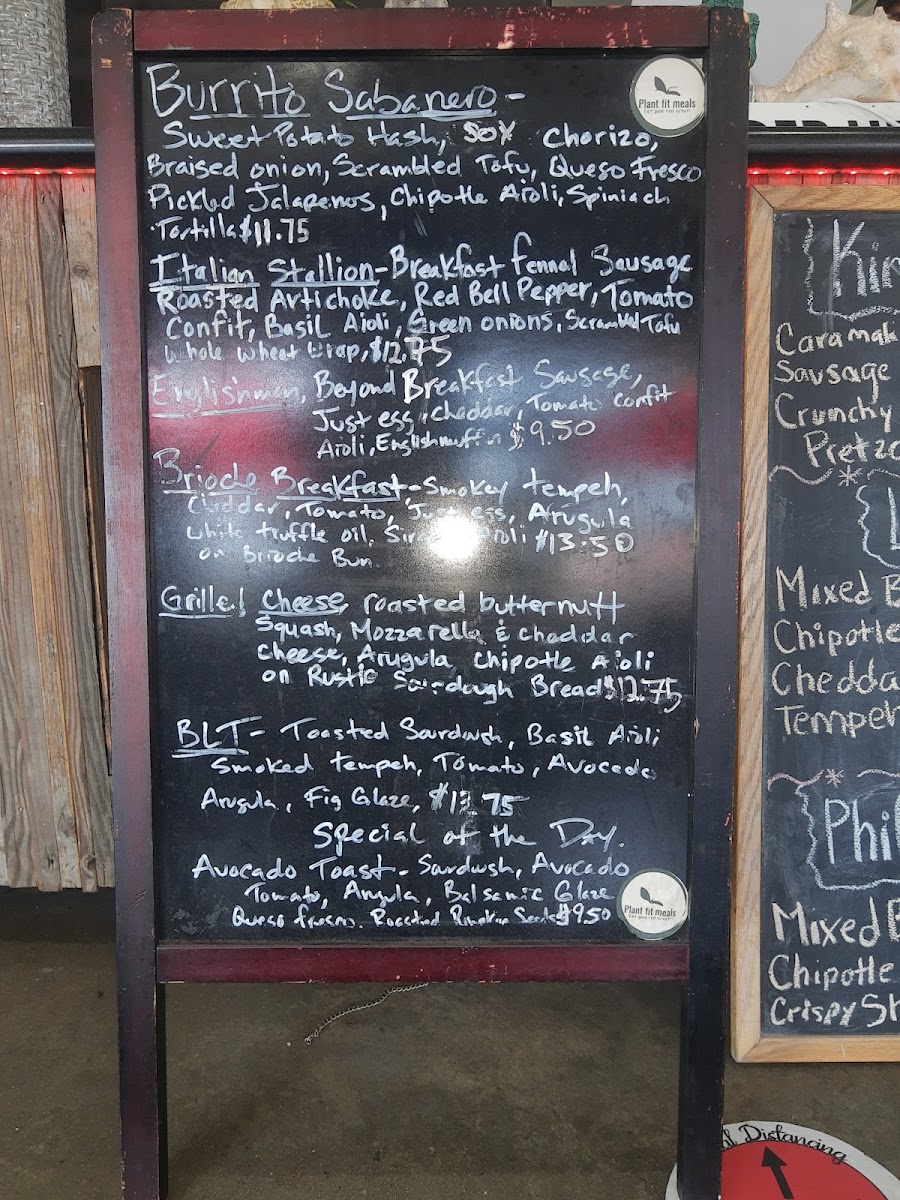 Burrito Sabanero -
Sweet Potato Hash, SOY Chorizo,
Braised onion, Scrambled Tofu, Queso Fresco
Pickled Jalapenos, Chipotle Aioli, Spiniach
Tortilla $11.75
Italian Stallion - Breakfast fennal Sausage
Roasted Artichoke, Red Bell Pepper, Tomato
Confit, Basil Aioli, Green onions, Scrambled Tofu
Whole Wheat Wrap, $12.75
Englishman, Beyond Breakfast Sausage,
Just egg, cheddar, Tomato confit
Aioli, English muffin $9.50
Brioche Breakfast - Smokey tempeh,
Cheddar, Tomato, Just egg, Arugula
White truffle oil, Aioli $13.50
on Brioche Bun.
Grilled Cheese, roasted butternutt
Squash, Mozzarella & Cheddar
Cheese, Arugula, Chipotle Aioli
on Rustic Sourdough Bread $12.75
BLT - Toasted Sourdough, Basil Aioli,
Smoked tempeh, Tomato, Avocado
Arugula, Fig Glaze, $13.75
Special of the Day.
Avocado Toast - Sourdough, Avocado
Tomato, Arugula, Balsamic Glaze
Queso fresco, Roasted Pumpkin Seeds $9.50
Plant fit meals
Plant fit meals
Kin
Caramal
Sausage
Crunchy
Pretz
L
Mixed B
Chipotle
Chedda
Tempeh
Phil
Mixed B
Chipotle
Crispy Sh
al Distancing